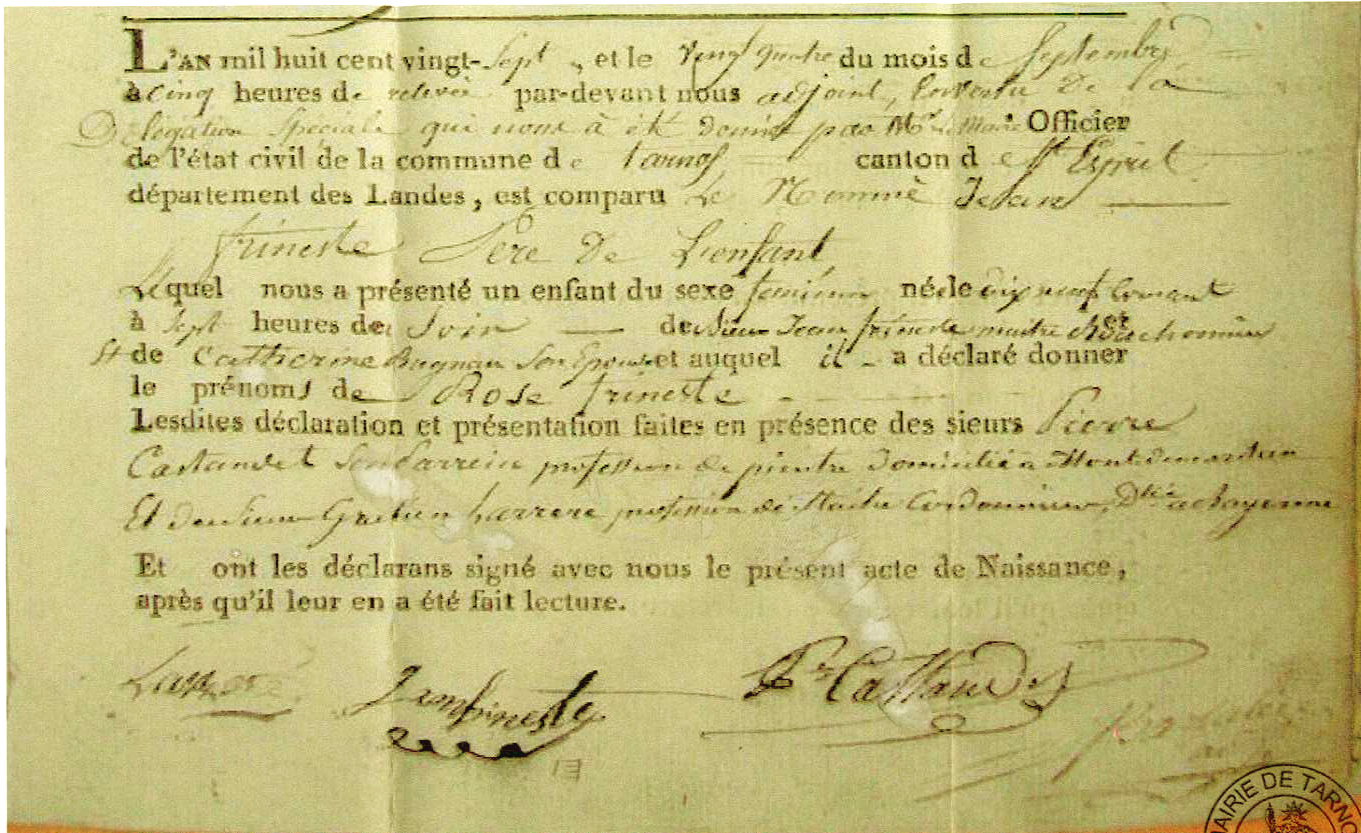 L'AN mil huit cent vingt-sept, et le vingt quatre du mois de Septembre
à cinq heures de relevée par-devant nous adjoint, En vertu De La
Délégation Spéciale qui nous à été donnée par Mr Le Maire Officier
de l'état civil de la commune de tarnos canton de St Esprit
département des Landes, est comparu Le Nommé Jean
frineste Pere De L'enfant
Lequel nous a présenté un enfant du sexe feminin né le dix neuf Courant
à Sept heures de Soir de Sieur Jean frineste maitre
et de Catherine Son Epouse et auquel il a déclaré donner
le prénoms de Rose frineste
Lesdites déclaration et présentation faites en présence des sieurs Pierre
Castandet profession de peintre Domicilié a Mont de marsan
Et du Sieur Gratien Larrere profession de Maitre Cordonnier, Dlié a Bayonne
Et ont les déclarans signé avec nous le présent acte de Naissance,
après qu'il leur en a été fait lecture.
Larreré Jean frineste Pre Castandet
MAIRIE DE TARNO